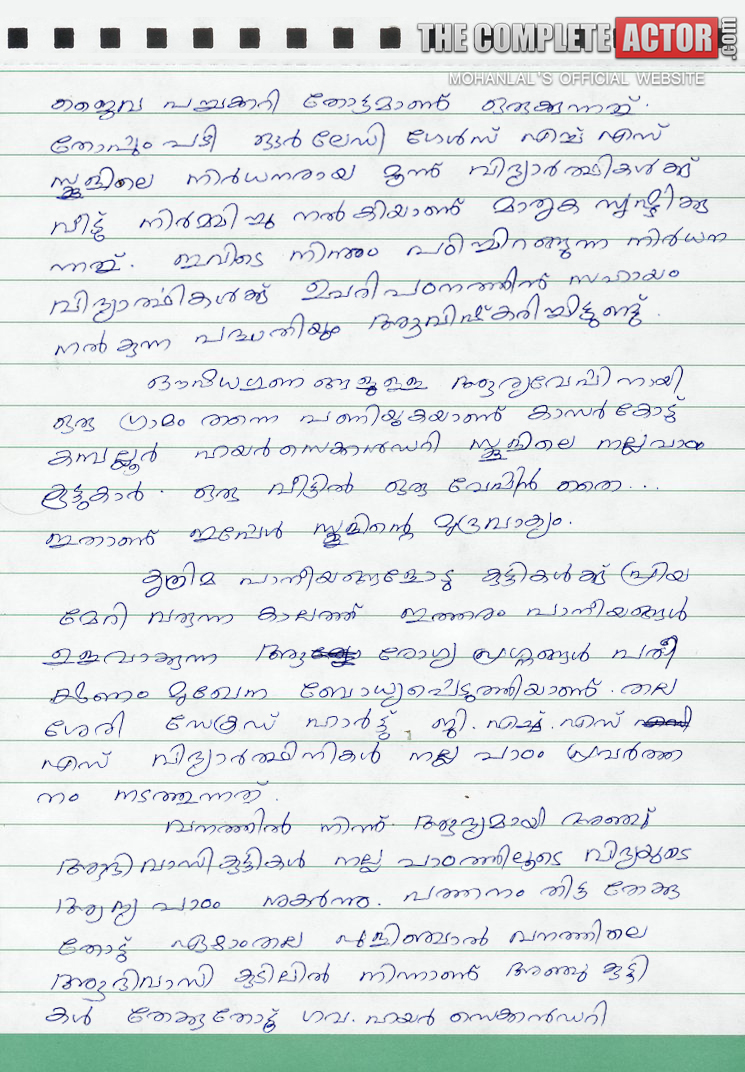 THE COMPLETE ACTOR .com
MOHANLAL'S OFFICIAL WEBSITE
ജൈവ പച്ചക്കറി തോട്ടമാണ് ഒരുക്കുന്നത്.
തോപ്പുംപടി ഔർ ലേഡി ഗേൾസ് എച്ച് എസ്
സ്കൂളിലെ നിർധനരായ മൂന്ന് വിദ്യാർത്ഥികൾക്ക്
വീട്ട് നിർമ്മിച്ചു നൽകിയാണ് മാതൃക സൃഷ്ടിക്കു
ന്നത്. ഇവിടെ നിന്നും പഠിച്ചിറങ്ങുന്ന നിർധന
വിദ്യാർത്ഥികൾക്ക് ഉപരിപഠനത്തിന് സഹായം
നൽകുന്ന പദ്ധതിയും ആവിഷ്കരിച്ചിട്ടുണ്ട്.
ഔഷധഗുണങ്ങളുള്ള ആര്യവേപ്പിനായി
ഒരു ഗ്രാമം തന്നെ പണിയുകയാണ് കാസർകോട്ട്
കമ്പല്ലൂർ ഹയർസെക്കൻഡറി സ്കൂളിലെ നല്ലപാഠം
കൂട്ടുകാർ. ഒരു വീട്ടിൽ ഒരു വേപ്പിൻ തൈ...
ഇതാണ് ഇപ്പോൾ സ്കൂളിന്റെ മുദ്രവാക്യം.
കൃത്രിമ പാനീയങ്ങളോടു കുട്ടികൾക്ക് പ്രിയ
മേറി വരുന്ന കാലത്ത് ഇത്തരം പാനീയങ്ങൾ
ഉളവാക്കുന്ന ആരോഗ്യ പ്രശ്നങ്ങൾ പരീ
ക്ഷണം മുഖേന ബോധ്യപ്പെടുത്തിയാണ് തല
ശേരി സേക്രഡ് ഹാർട്ട് ജി. എച്ച്. എസ്
എസ് വിദ്യാർത്ഥിനികൾ നല്ല പാഠം പ്രവർത്ത
നം നടത്തുന്നത്.
വനത്തിൽ നിന്ന് ആദ്യമായി അഞ്ച്
ആദിവാസികുട്ടികൾ നല്ല പാഠത്തിലൂടെ വിദ്യയുടെ
ആദ്യ പാഠം നുകർന്നു. പത്തനംതിട്ട തേക്കു
തോട്ട് ഏഴാംതല പുളിഞ്ചാൽ വനത്തിലെ
ആദിവാസി കുടിലിൽ നിന്നാണ് അഞ്ചു കുട്ടി
കൾ തേക്കുതോട്ട് ഗവ. ഹയർ സെക്കൻഡറി